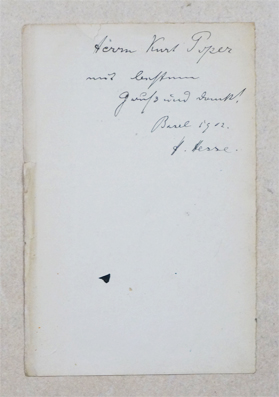 Herrn Kurt Piper
mit bestem
Gruß und Dank!
Basel 1902.
H. Hesse.